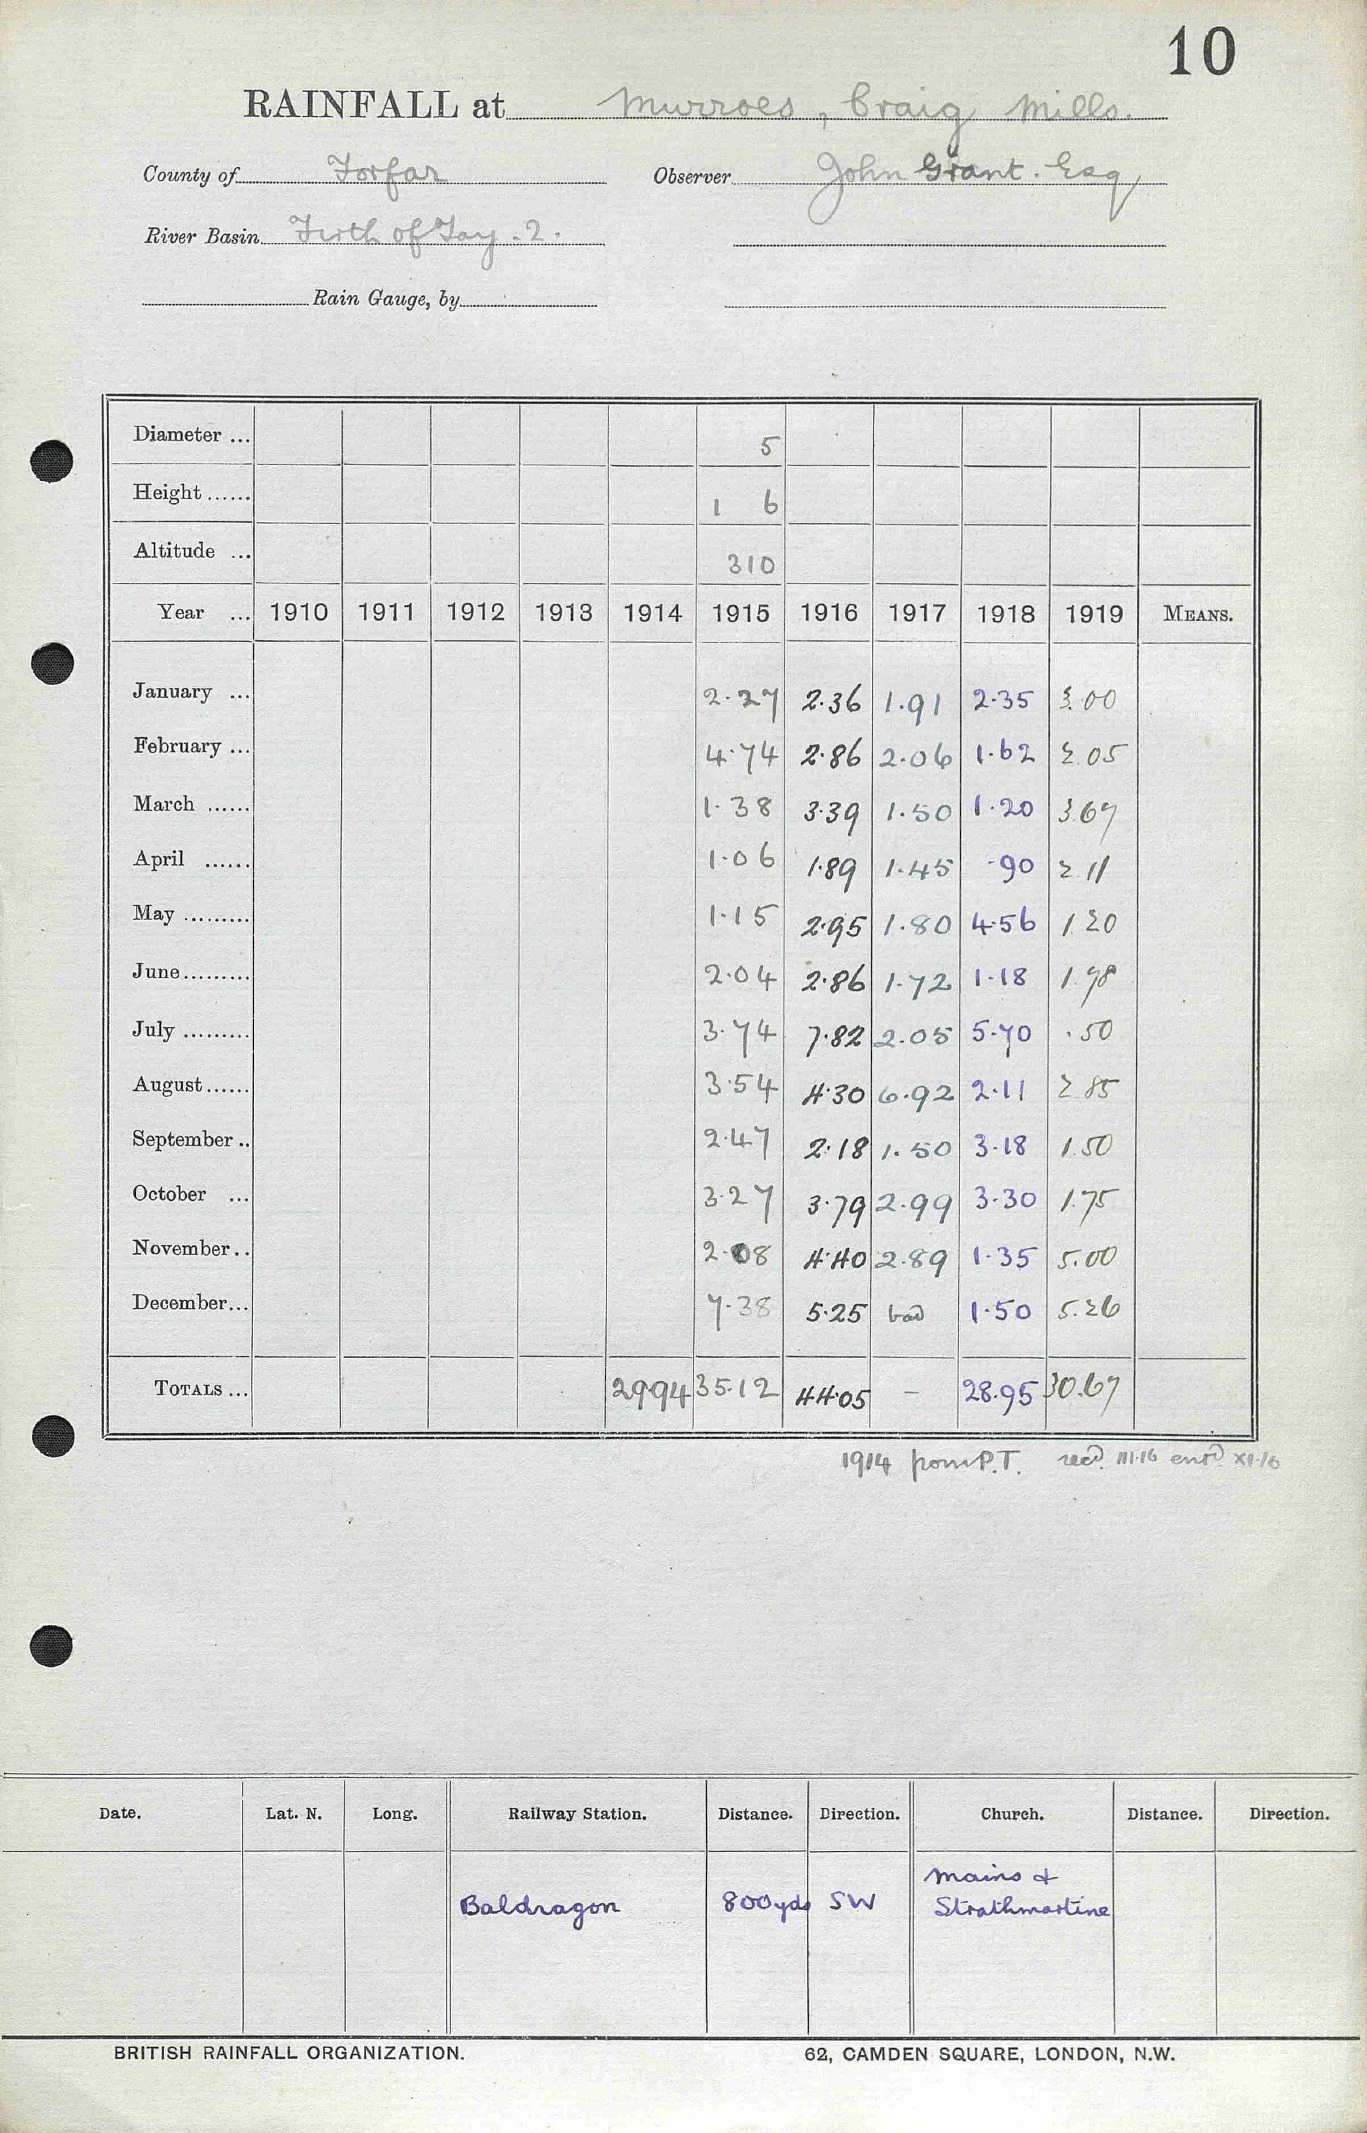 10
RAINFALL at Murroes, Craig Mills.
County of Forfar Observer John Grant. Esq
River Basin Firth of Tay . 2 .
Rain Gauge, by
Diameter ... 5
Height ...... 1 6
Altitude ... 310
Year ... 1910 1911 1912 1913 1914 1915 1916 1917 1918 1919 MEANS.
January ... 2.27 2.36 1.91 2.35 3.00
February ... 4.74 2.86 2.06 1.62 2.05
March ...... 1.38 3.39 1.50 1.20 3.67
April ...... 1.06 1.89 1.45 .90 2.11
May ......... 1.15 2.95 1.80 4.56 1.20
June ......... 2.04 2.86 1.72 1.18 1.98
July ......... 3.74 7.82 2.05 5.70 .50
August ...... 3.54 4.30 6.92 2.11 2.85
September .. 2.47 2.18 1.50 3.18 1.50
October ... 3.27 3.79 2.99 3.30 1.75
November .. 2.08 4.40 2.89 1.35 5.00
December ... 7.38 5.25 bad 1.50 5.26
TOTALS ... 29.94 35.12 44.05 - 28.95 30.67
1914 from P.T. recd. III.16 entd. XI.16
Date. Lat. N. Long. Railway Station. Distance. Direction. Church. Distance. Direction.
Baldragon 800yds SW Mains &
Strathmartine
BRITISH RAINFALL ORGANIZATION. 62, CAMDEN SQUARE, LONDON, N.W.